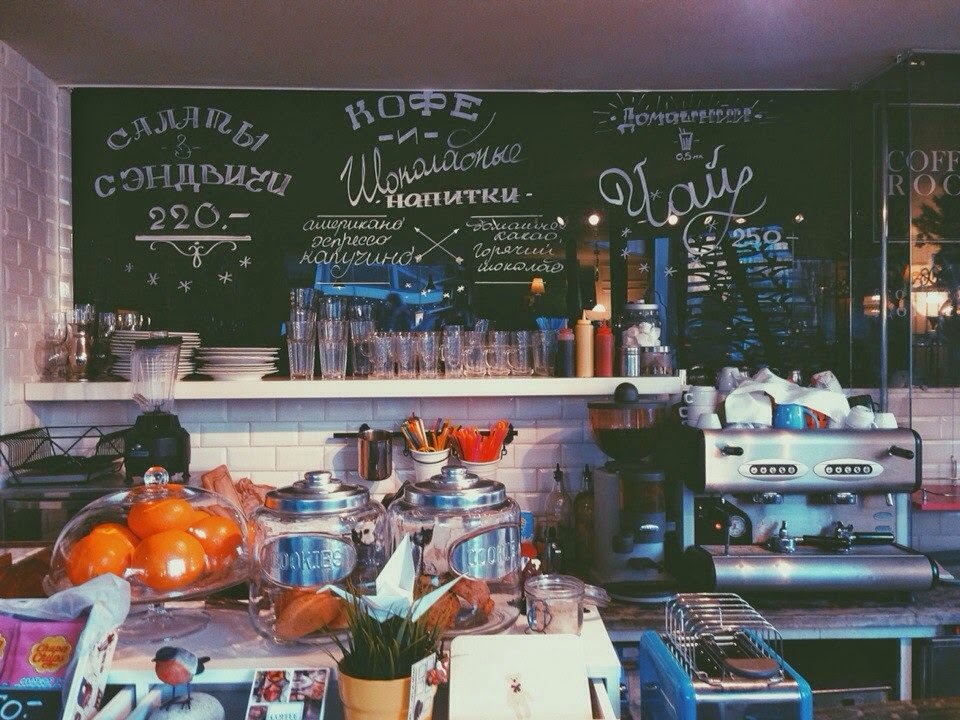 САЛАТЫ
&
СЭНДВИЧИ
220.-
КОФЕ
-И-
Шоколадные
НАПИТКИ-
американо
эспрессо
капучино
домашнее
какао,
горячий
шоколад
Домашний
0,5 л
Чай
250
COFF
ROC
COOKIES
COOKIE
Chupa
Chups